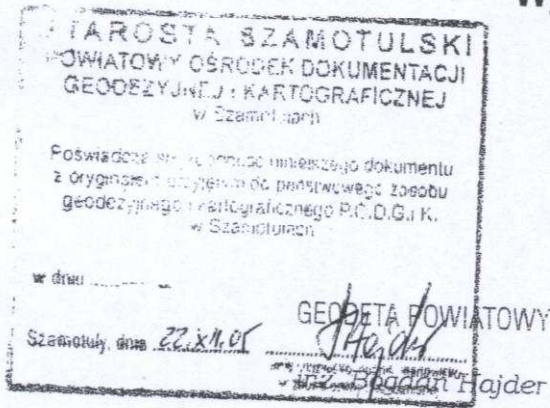 STAROSTA SZAMOTULSKI
POWIATOWY OŚRODEK DOKUMENTACJI
GEODEZYJNEJ i KARTOGRAFICZNEJ
w Szamotułach
Poświadcza się zgodność niniejszego dokumentu
z oryginałem przyjętym do państwowego zasobu
geodezyjnego i kartograficznego P.O.D.G.i K.
w Szamotułach
w dniu
GEODETA POWIATOWY
Szamotuły, dnia 22.XII.05
Hajder
Bogdan Hajder